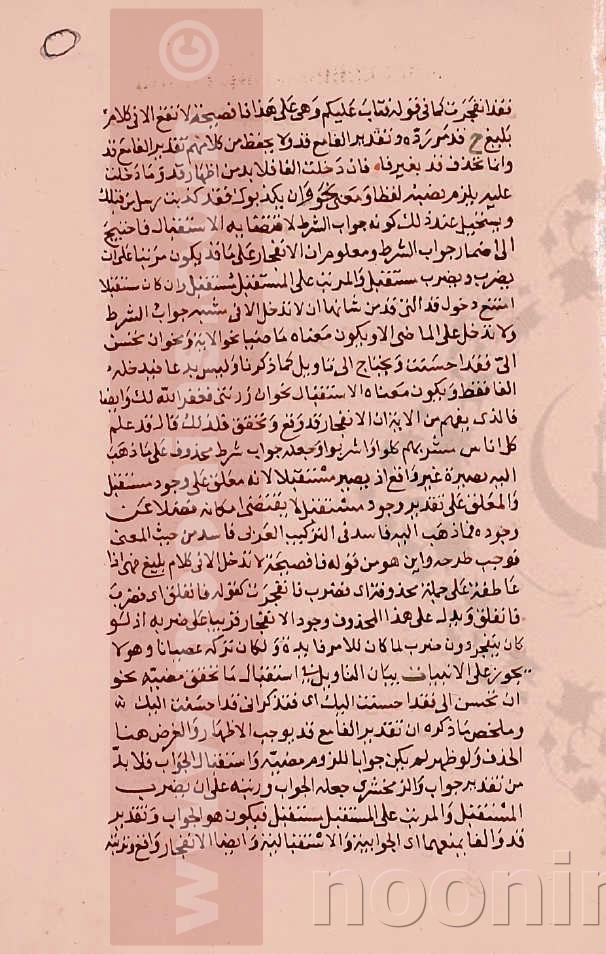 فقد انفجرت كما في قوله فتاب عليكم وهي على هذا فا فصيحة لا تقع الا في كلام
بليغ ح قد مر رده وتقدير الفا مع قد ولا يحفظ من كلامهم تقدير الفا مع قد
وانما تحذف قد بغير فا فان دخلت الفا فلا بد من اظهار قد وما دخلت
عليه يلزم تصييره لفظا ومعنى نحو وان يكذبوك فقد كذبت رسل من قبلك
ويستحيل عند ذلك كونه جواب الشرط لاقتضائه الاستقبال فاحتيج
الى اضمار جواب الشرط ومعلوم ان الانفجار على ما قد يكون مرتبا على ان
يضرب ويضرب مستقبل والمرتب على المستقبل مستقبل وان كان مستقبلا
امتنع دخول قد التي قد من شانها ان لا تدخل الا في شبه جواب الشرط
ولا تدخل على الماضي الا ويكون معناه ماضيا نحو الاية ونحو ان تحسن
الي فقد احسنت ويحتاج الى تاويل كما ذكرنا وليس بدعا فيدخله
الفا فقط ويكون معناه الاستقبال نحو ان زرتني فغفر الله لك وايضا
فالذي يفهم من الاية ان الانفجار قد وقع وتحقق فلذلك قال قد علم
كل اناس مشربهم كلوا واشربوا وجعله جواب شرط محذوف على ما ذهب
اليه يصيره غير واقع اذ يصير مستقبلا لانه معلق على وجود مستقبل
والمعلق على تقدير وجود مستقبل لا يقتضي امكانه فضلا عن
وجوده فما ذهب اليه فاسد في التركيب العربي فاسد من حيث المعنى
فوجب طرحه واين هو من قوله فا فصيحة لا تدخل الا في كلام بليغ فهي اذا
عاطفة على جملة محذوفة اي فضرب فانفجرت كقوله فانفلق اي فضرب
فانفلق ويدل على هذا المحذوف وجود الانفجار مرتبا على ضربه اذ لو
كان يتفجر دون ضرب لما كان للامر فايدة ولكان تركه عصيانا وهو لا
يجوز على الانبياء بيان التاويل استقبال ما تحقق مضيه نحو
ان تحسن الي فقد احسنت اليك اي فتذكر اني قد احسنت اليك
وملخص ما ذكره ان تقدير الفا مع قد يوجب الاظهار والغرض هنا
الحذف ولو ظهر لم يكن جوابا للزوم مضيه واستقبال الجواب فلا بد
من تقدير جواب والزمخشري جعله الجواب ورتبه على ان يضرب
المستقبل والمرتب على المستقبل مستقبل فيكون هو الجواب وتقدير
قد والفا يمنعهما اي الجوابية والاستقبالية وايضا الانفجار واقع وترتبه
www.noonin
noonin
©